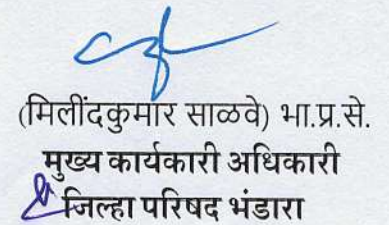 (मिलींदकुमार साळवे) भा.प्र.से.
मुख्य कार्यकारी अधिकारी
जिल्हा परिषद भंडारा